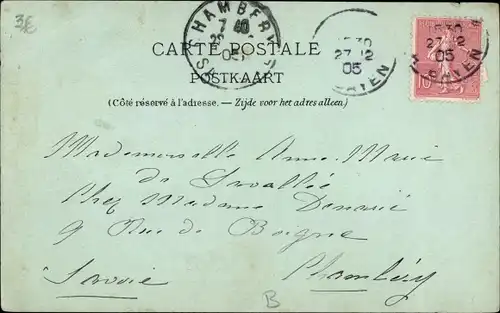 3E
CHAMBERY
7 40
05
SAVOIE
27 12
05
27 12
05
10
CARTE POSTALE
POSTKAART
(Côté réservé à l'adresse. — Zijde voor het adres alleen)
Mademoiselle Anne Marie
de
Chez Madame
9 Rue de Boigne
Savoie Chambéry
B